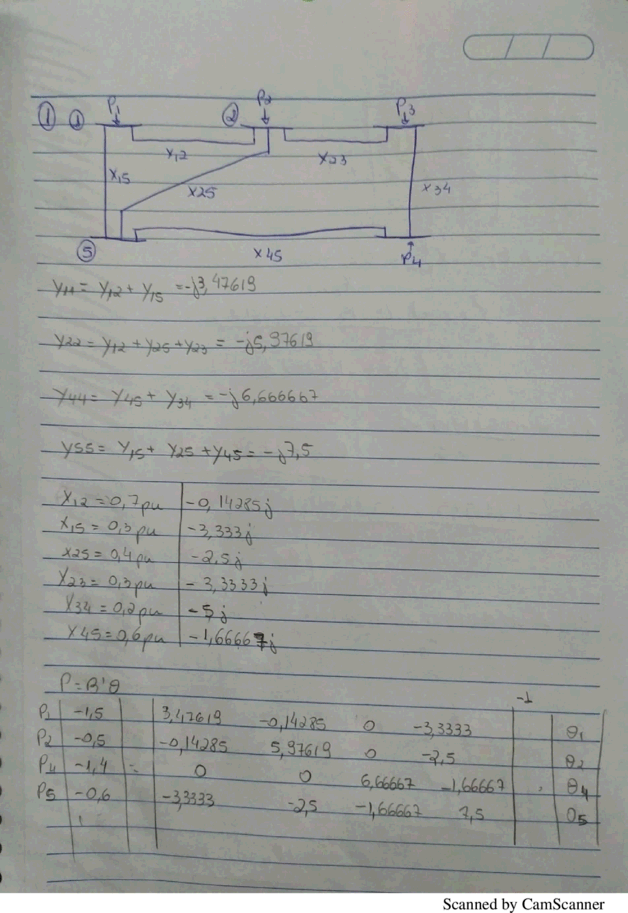 ① ① P1 ② P2 P13
X12 X23
X15 X25 X34
⑤ X45 P4
Y11 = Y12 + Y15 = -j3,47619
Y22 = Y12 + Y25 + Y23 = -j5,97619
Y44 = Y45 + Y34 = -j6,666667
Y55 = Y15 + Y25 + Y45 = -j7,5
X12 = 0,7pu -0,14285j
X15 = 0,3pu -3,333j
X25 = 0,4pu -2,5j
X23 = 0,3pu -3,3333j
X34 = 0,2pu -5j
X45 = 0,6pu -1,66667j
P = B'θ -1
P1 -1,5 3,47619 -0,14285 0 -3,3333 θ1
P2 -0,5 -0,14285 5,97619 0 -2,5 θ2
P4 -1,4 = 0 0 6,66667 -1,66667 . θ4
P5 -0,6 -3,3333 -2,5 -1,66667 7,5 θ5
Scanned by CamScanner